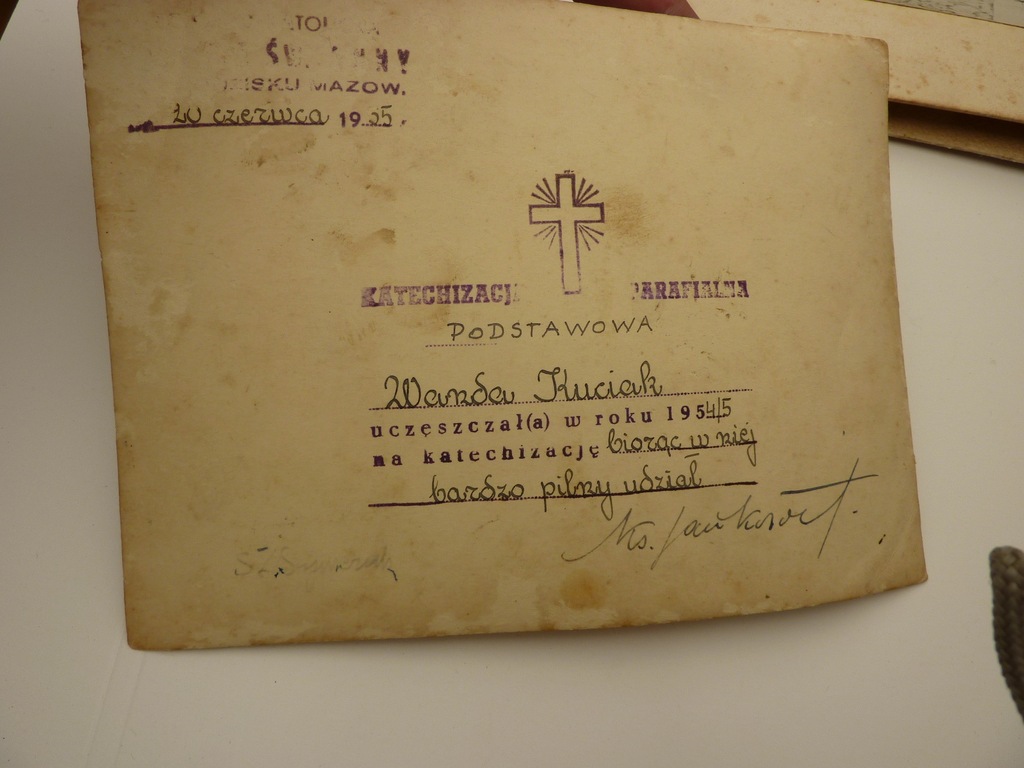 MAZOW.
20 czerwca 1955.
KATECHIZACJA PARAFIALNA
PODSTAWOWA
Wanda Kuciak
uczęszczał(a) w roku 1954/5
na katechizację biorąc w niej
bardzo pilny udział
Ks.